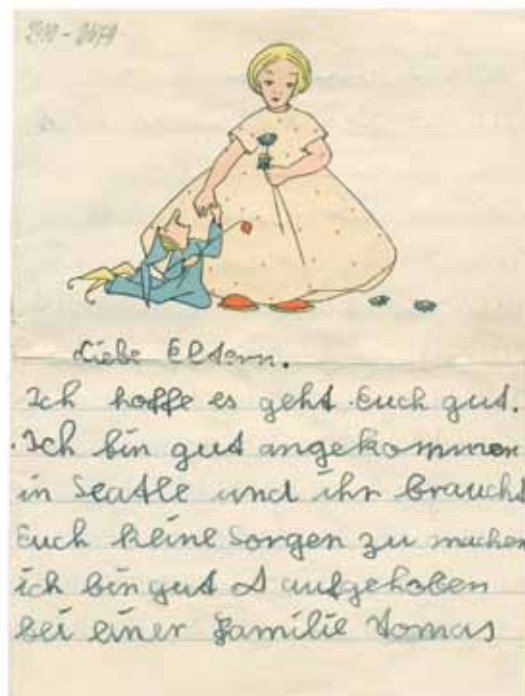 Liebe Eltern.
Ich hoffe es geht Euch gut.
Ich bin gut angekommen
in Seatle und ihr braucht
Euch keine Sorgen zu machen
ich bin gut aufgehoben
bei einer Familie Tomas